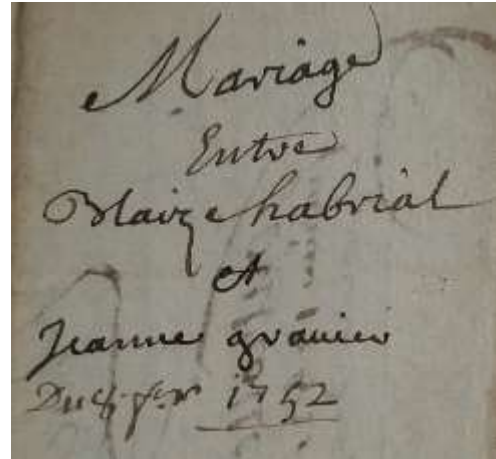 Mariage
Entre
Blaize chabrial
et
Jeanne granier
1752